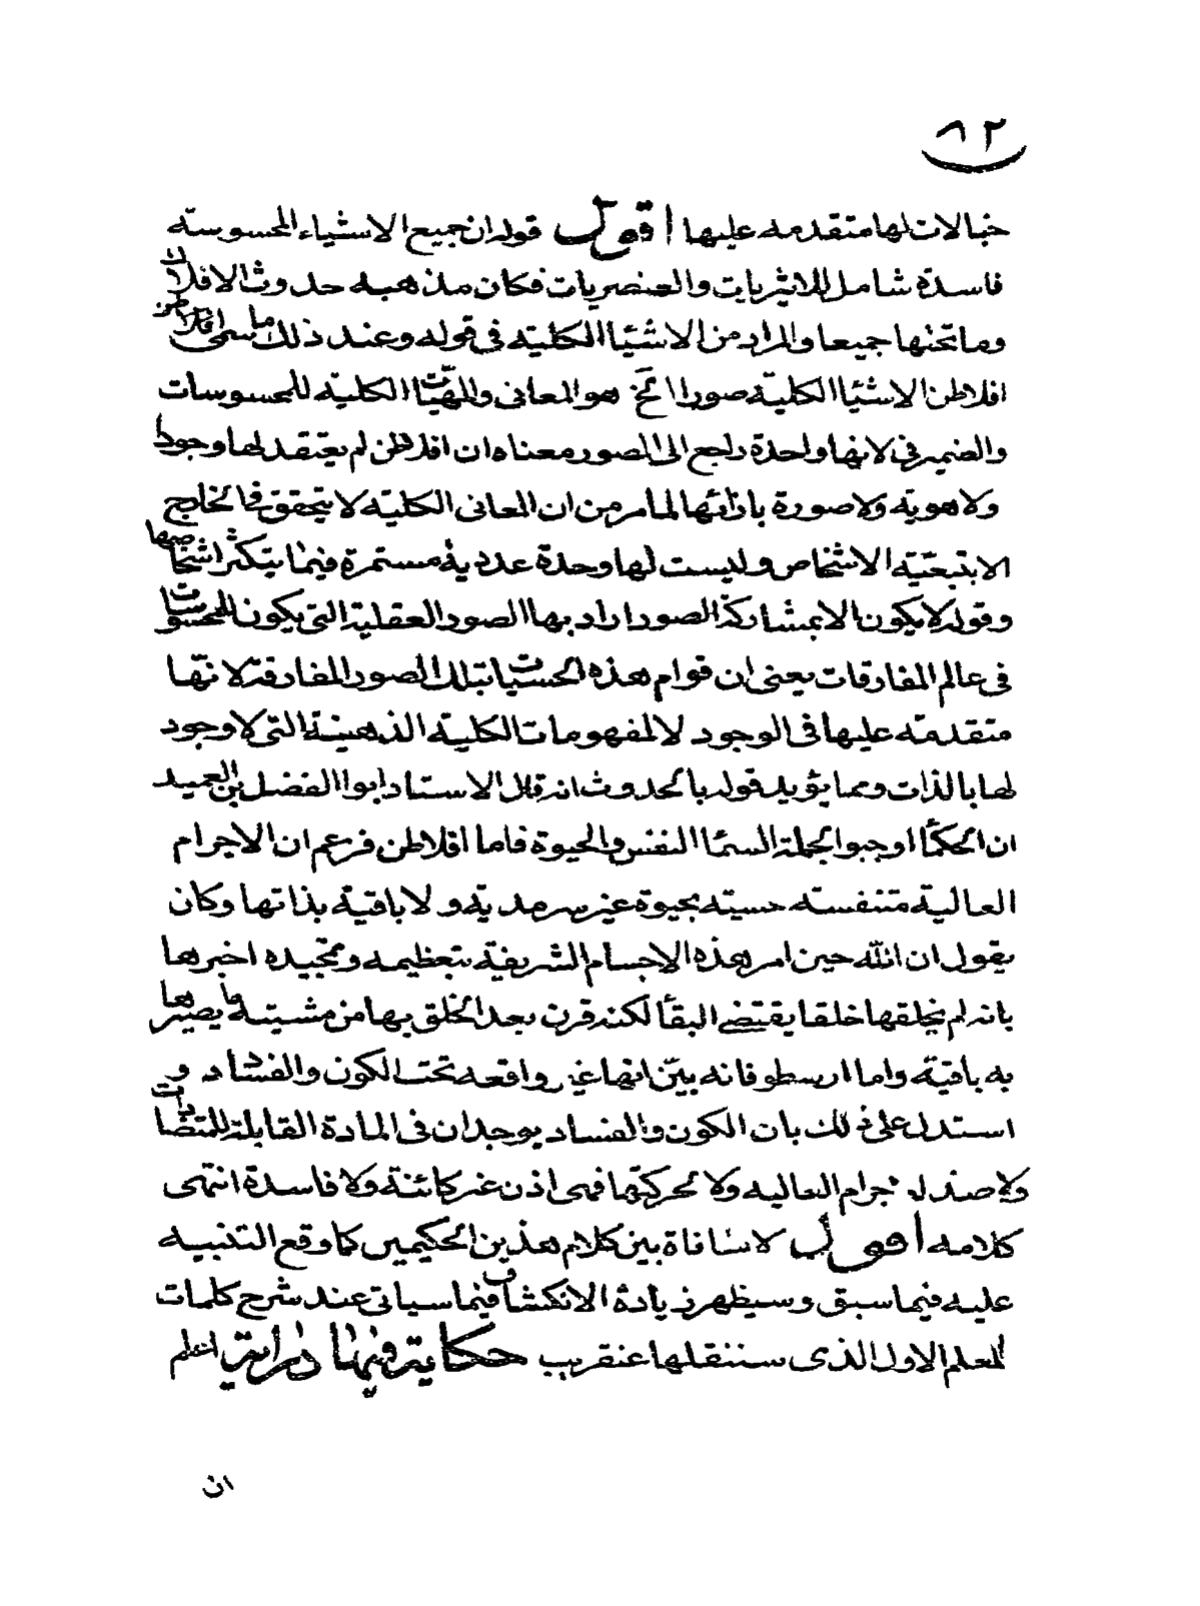 ٨٢
خيالات لها متقدمه عليها اقول قوله ان جميع الاشياء المحسوسته
فاسدة شامل للاثيريات والعنصريات فكان مذهبه حدوث الافلاك
وما تحتها جميعا والمراد من الاشيا الكليته في قوله وعند ذلك ما سمى افلاطن
افلاطن الاشيا الكليّه صورا اتخ هو المعانى والمهيّات الكليّه للمحسوسات
والضمير فى لانها واحدة راجع الى الصور معناه ان افلاطن لم يعتقد لها وجودا
ولا هويه ولا صورة بازائها لما مر من ان المعانى الكليّه لا يتحقق فى الخارج
الا بتبعيّة الاشخاص وليست لها وحدة عدديه مستمرة فيما يتكثر اشخاصها
وقوله لا يكون الا بمشاركة الصور اراد بها الصور العقلية التى يكون للمحسوسات
فى عالم المفارقات يعنى ان قوام هذه الحسيات بتلك الصور المفارقة لانّها
متقدمّه عليها فى الوجود لا المفهومات الكلية الذهنية التى لا وجود
لها بالذات ومما يؤيد قوله بالحدوث انه قال الاستاد ابوا الفضل بن العميد
ان الحكمأ اوجبوا لجملة السمٔا النفس والحيوة فاما افلاطن فزعم ان الاجرام
العالية متنفسته حسيته بحيوة غير سرمديّه ولا باقية بذاتها وكان
يقول ان الله حين امر هذه الاجسام الشريفة بتعظيمه وتمجيده اخبرها
بانه لم يخلقها خلقا يقتضى البقأ لكنه قرن بعد الخلق بها من مشيته ما يصيرها
به باقية واما ارسطو فانه بيّن انها غير واقعه تحت الكون والفساد و
استدل على ذلك بان الكون والفساد يوجدان فى المادة القابلة للمتضادات
ولا ضد لاجرام العاليه ولا لحركتها فهى اذن غير كائنة ولا فاسدة انتهى
كلامه اقول لا منافاة بين كلام هذين الحكيمين كما وقع التنبيه
عليه فيما سبق وسيظهر زيادة الانكشاف فيما سياتى عند شرح كلمات
المعلم الاول الذى سننقلها عنقريب حكاية فيها دراية اعلم
ان